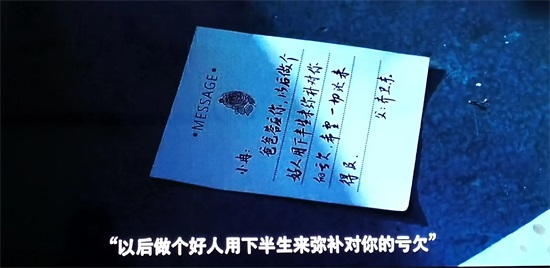 MESSAGE
小冉:
爸爸答应你,以后做个
好人用下半生来弥补对你
的亏欠、希望一切还来
得及、
父:
“以后做个好人用下半生来弥补对你的亏欠”